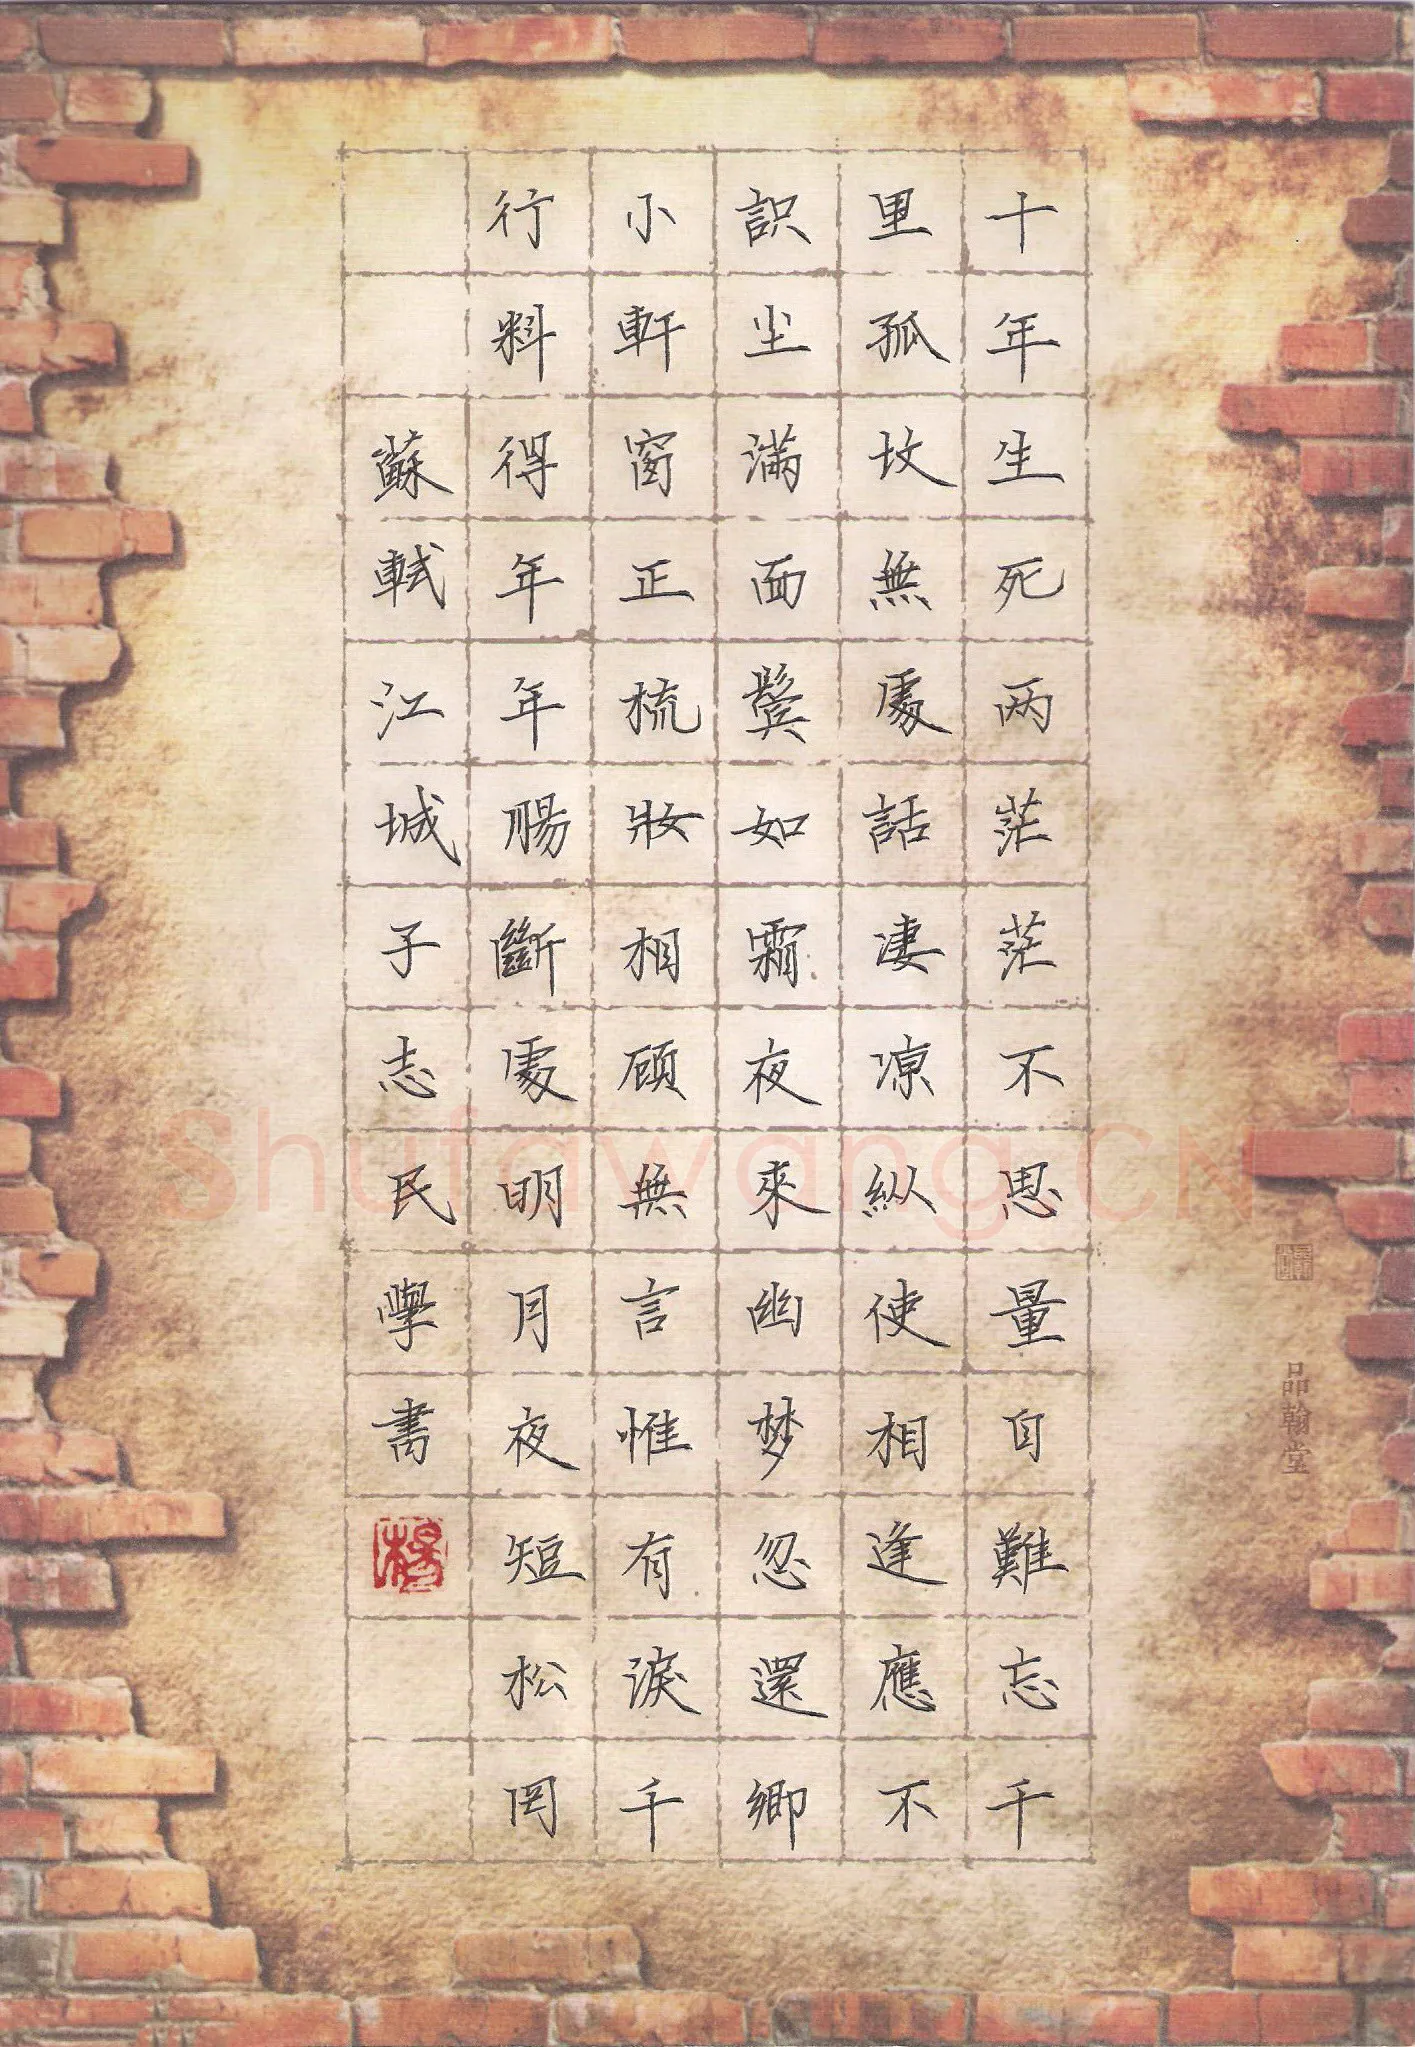 十年生死两茫茫不思量自難忘千
里孤坟無處話淒凉縱使相逢應不
識尘滿面鬓如霜夜來幽梦忽還鄉
小軒窗正梳妝相顾無言惟有淚千
行料得年年腸斷處明月夜短松罔
蘇軾江城子志民學書
楊
品翰堂
Shufawang.CN